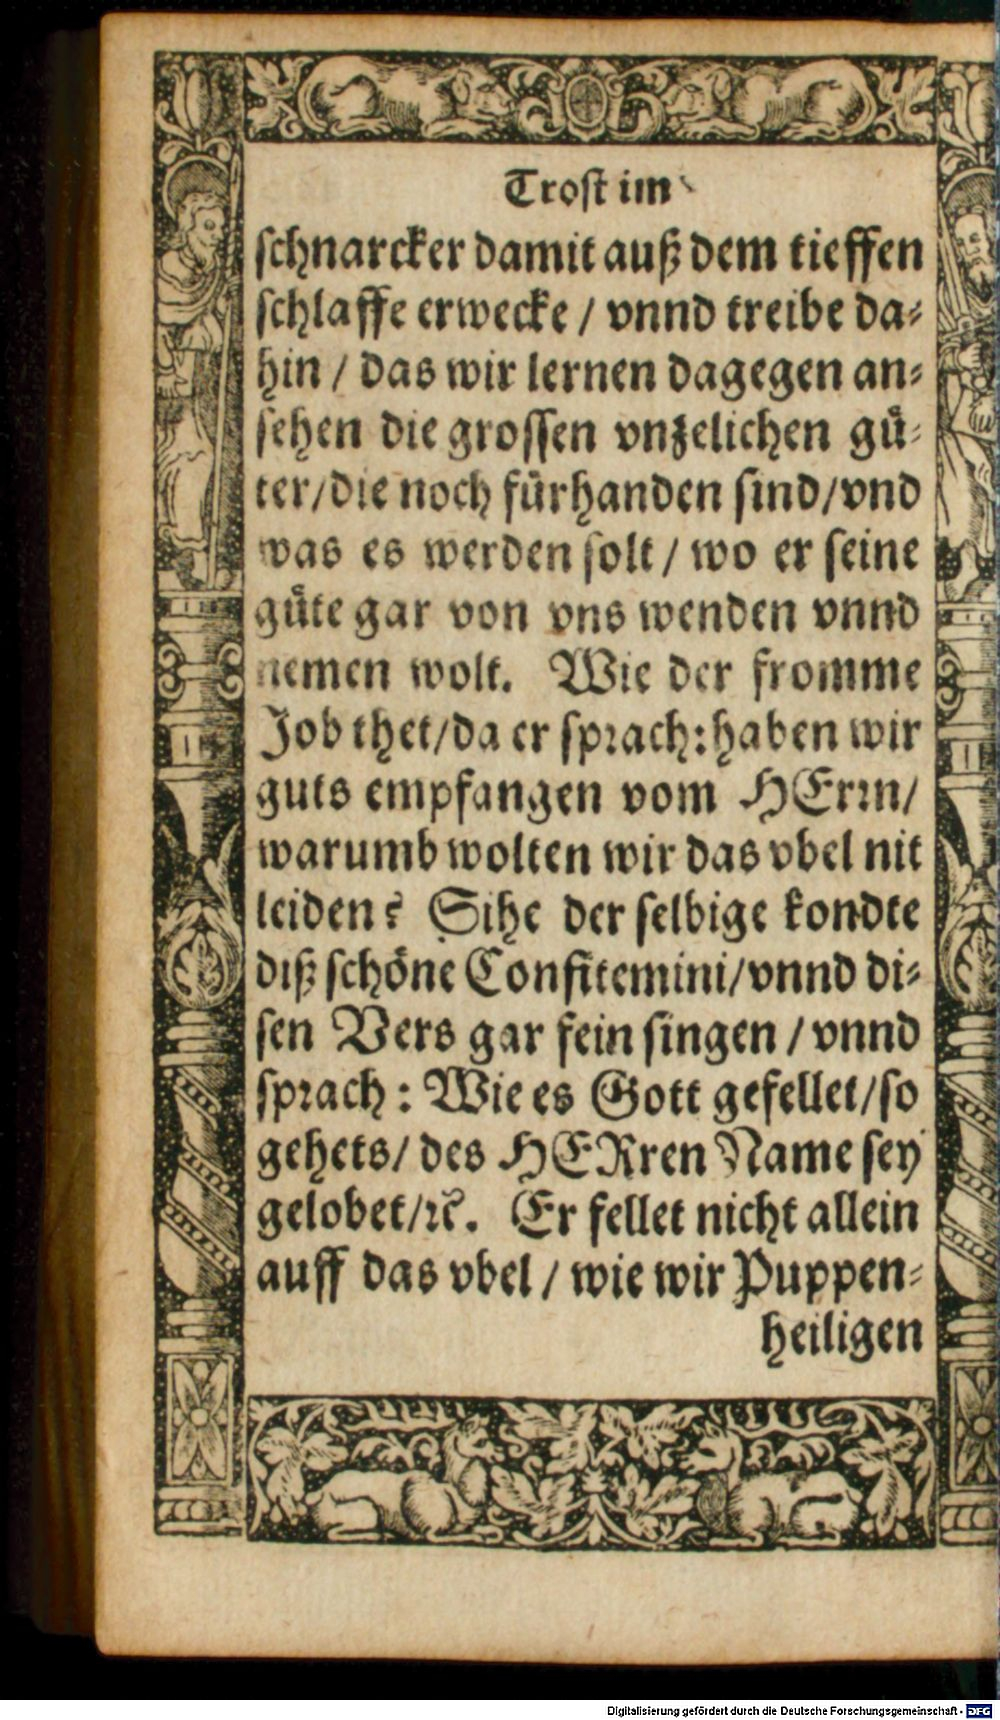 Trost im
schnarcker damit auß dem tieffen
schlaffe erwecke / vnnd treibe da⸗
hin / das wir lernen dagegen an⸗
sehen die grossen vnzelichen guͤ⸗
ter/die noch fuͤrhanden sind/vnd
was es werden solt / wo er seine
guͤte gar von vns wenden vnnd
nemen wolt. Wie der fromme
Job thet/da er sprach: haben wir
guts empfangen vom HErrn/
warumb wolten wir das vbel nit
leiden? Sihe der selbige kondte
diß schoͤne Confitemini/vnnd di⸗
sen Vers gar fein singen / vnnd
sprach: Wie es Gott gefellet/so
gehets/ des HERren Name sey
gelobet/ꝛc̃. Er fellet nicht allein
auff das vbel / wie wir Puppen⸗
heiligen
Digitalisierung gefördert durch die Deutsche Forschungsgemeinschaft - DFG